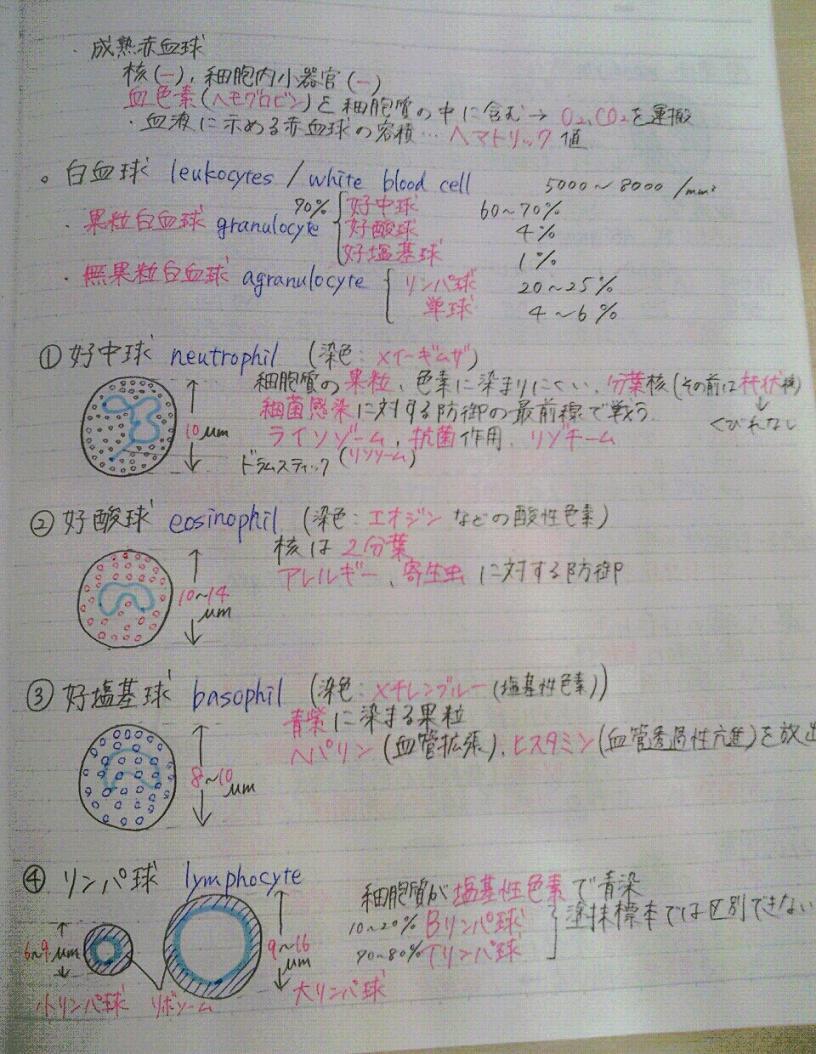 ・成熟赤血球
核(-), 細胞内小器官(-)
血色素(ヘモグロビン)を細胞質の中に含む→ O₂,CO₂を運搬
・血液に示める赤血球の容積…ヘマトリック値
。白血球 leukocytes / white blood cell 5000~8000 /mm³
・果粒白血球 granulocyte 90%
好中球 60~70%
好酸球 4%
好塩基球 1%
・無果粒白血球 agranulocyte
リンパ球 20~25%
単球 4~6%
①好中球 neutrophil (染色:メイ-ギムザ)
細胞質の果粒、色素に染まりにくい、分葉核(その前は杆状核)
↓
くびれなし
細菌感染に対する防御の最前線で戦う
ライソゾーム, 抗菌作用, リゾチーム
(リソソーム)
ドラムスティック
10μm
②好酸球 eosinophil (染色:エオジンなどの酸性色素)
核は2分葉
アレルギー、寄生虫に対する防御
10~14μm
③好塩基球 basophil (染色:メチレンブルー(塩基性色素))
青紫に染まる果粒
ヘパリン(血管拡張), ヒスタミン(血管透過性亢進)を放出
8~10μm
④リンパ球 lymphocyte
細胞質が塩基性色素で青染
10~20% Bリンパ球
70~80% Tリンパ球
塗抹標本では区別できない
6~9μm
9~16μm
小リンパ球 リボソーム 大リンパ球